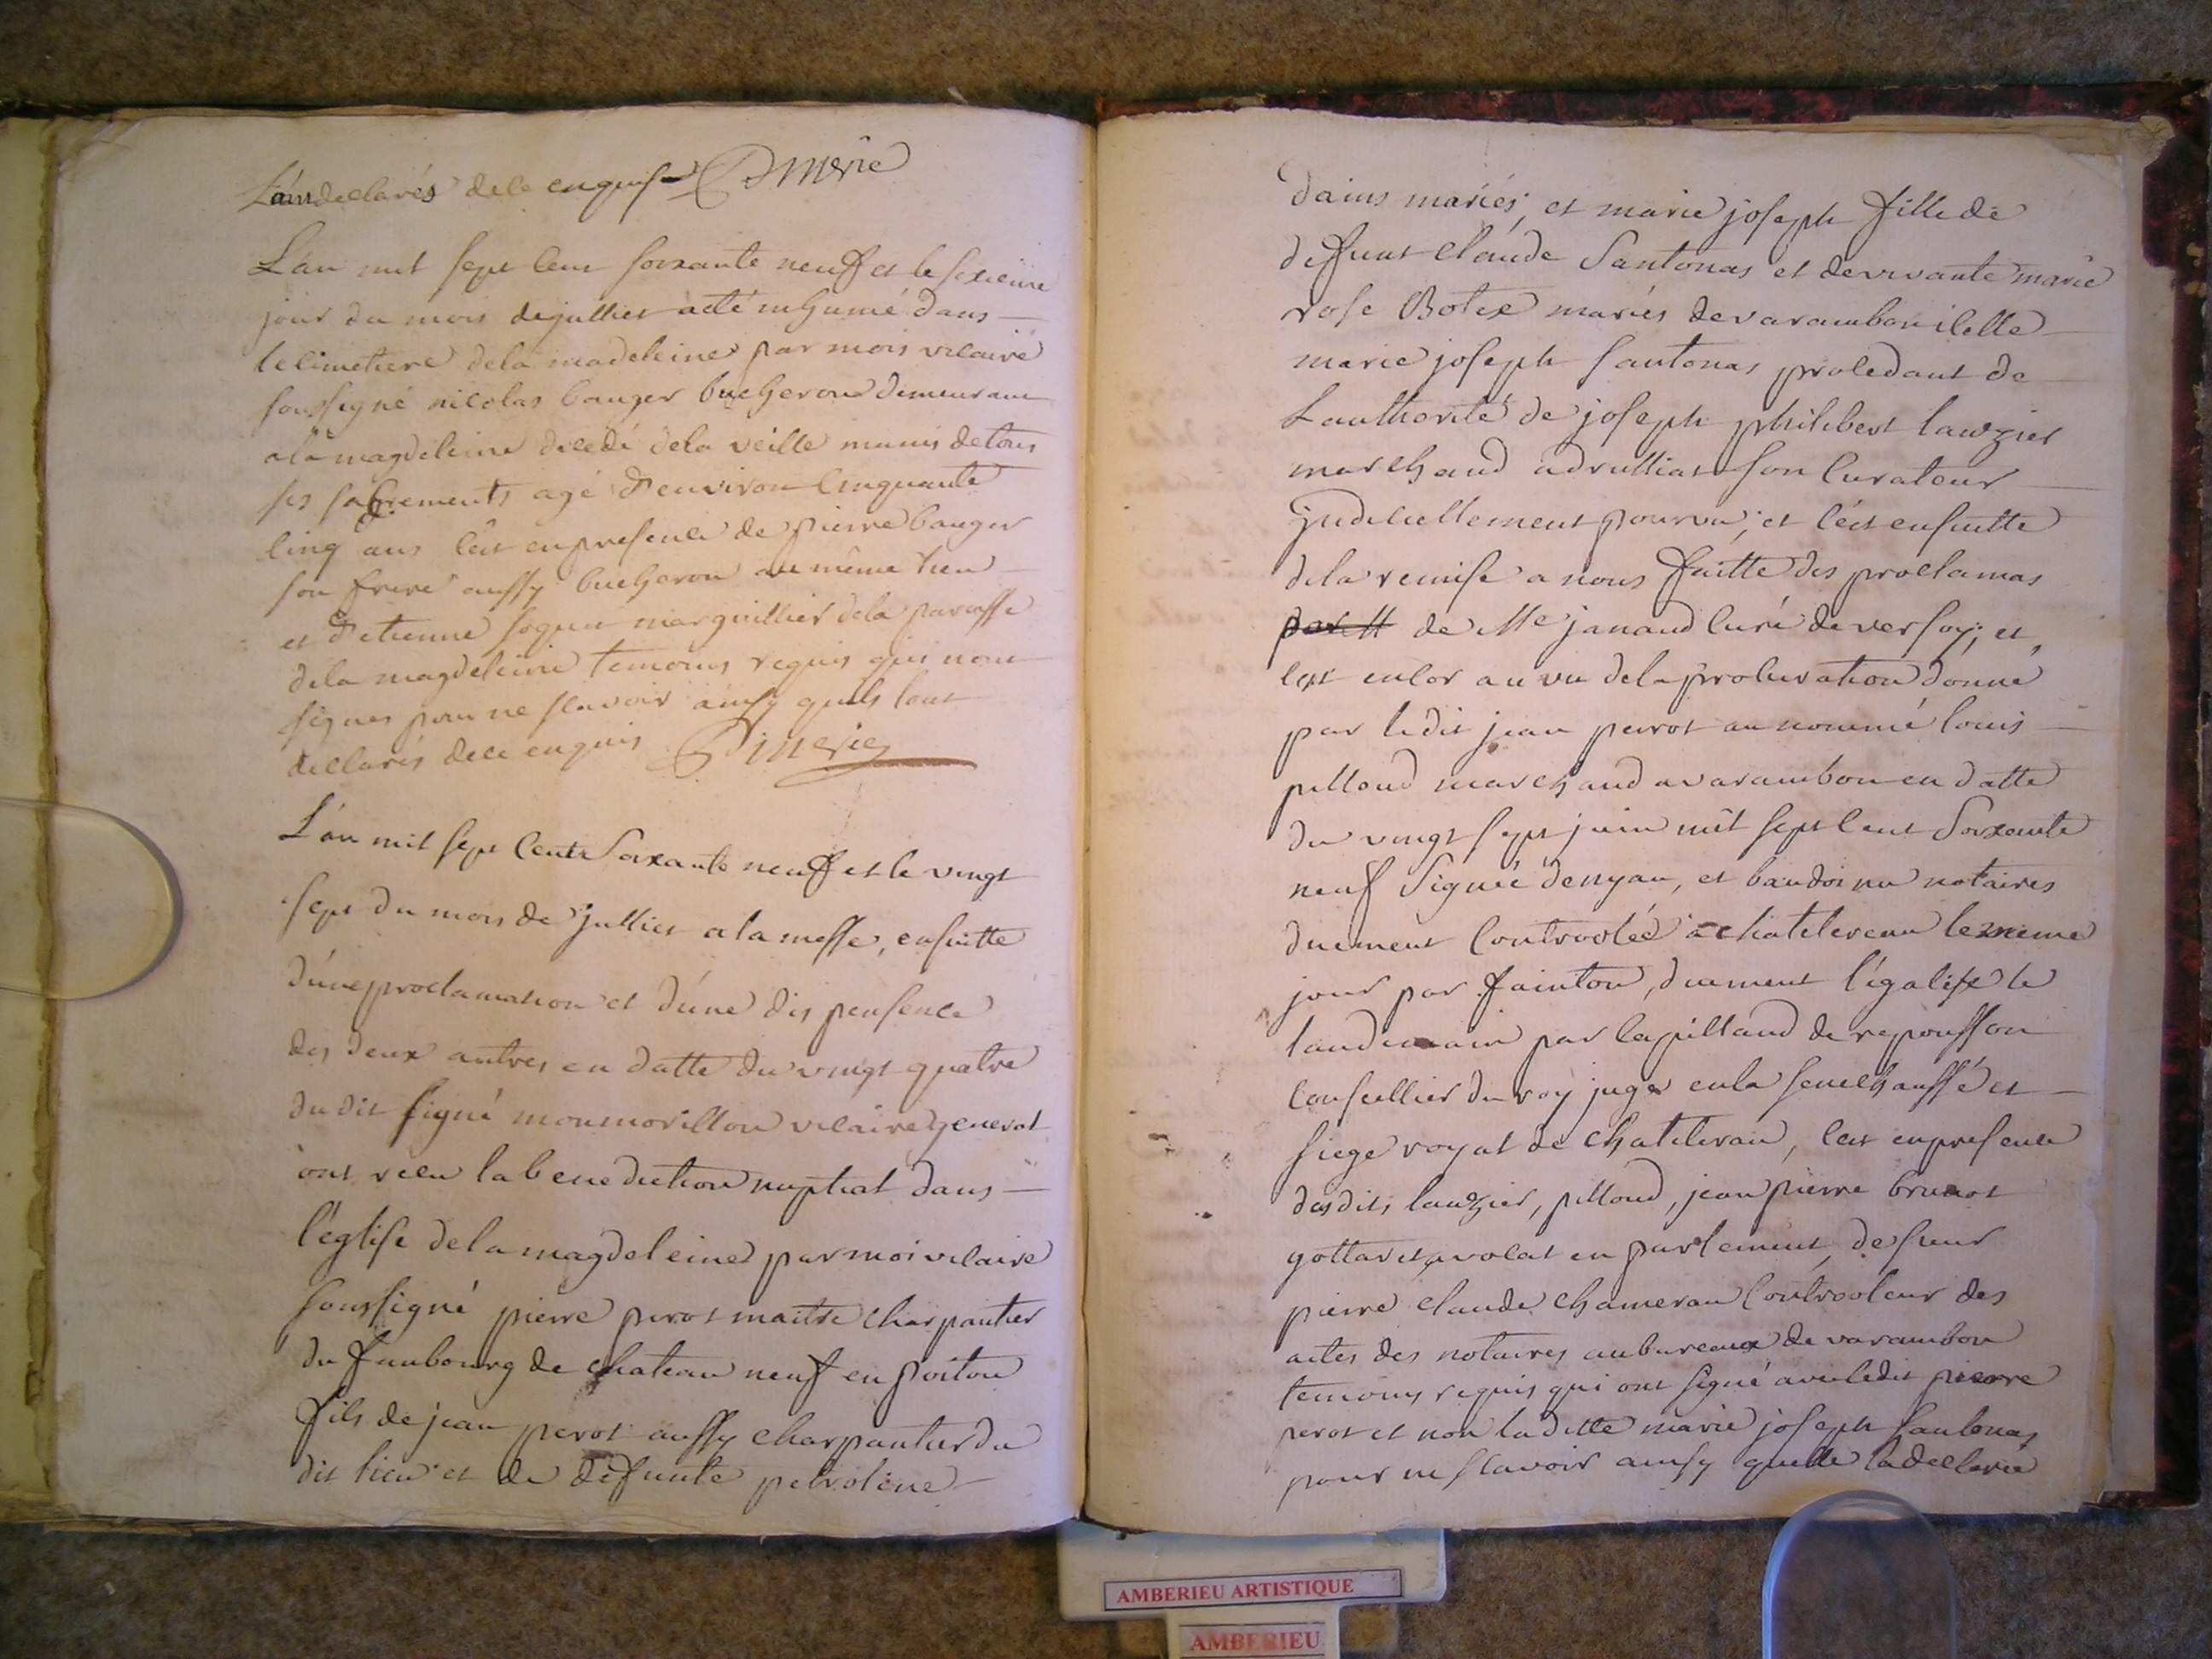 L'an declarés de ce enquis Dmerie
L'an mil sept cent soixante neuf et le sexieme
jour du mois de julliet a été inhumé dans
le cimetiere de la madeleine par mois vicaire
soussigné nicolas bauger bucheron demeurant
a la magdeleine decedé de la veille munis de tous
ses sacrements agé d'environ cinquante
cinq ans c'est en presence de pierre bauger
son frere aussy bucheron au même lieu
et d'etienne marguillier de la paroisse
de la magdeleine temoins requis qui n'ont
signes pour ne scavoir ainsy quils l'ont
declarés de ce enquis
L'an mil sept cents soixante neuf et le vingt
sept du mois de julliet a la messe, ensuitte
d'une proclamation et d'une dispensence
des deux autres en datte du vingt quatre
du dit signé monmorillon vicaire general
ont recu la benediction nuptial dans
l'église de la magdeleine par moi vicaire
soussigné pierre perot maitre charpantier
du faubourg de chateau neuf en poitou
fils de jean perot aussy charpantier du
dit lieu et de defunte petroline
dains mariés, et marie joseph fille de
deffunt claude Santonas et de vivante marie
rose Botex mariés de varambon icelle
marie joseph santonas procedant de
L'authorité de joseph philibert lauzier
marchand a druillias son curateur
judiciellement pourvu, et c'est ensuitte
de la remise a nous faitte des proclamas
par M de Me janaud curé de versoy, et,
c'est encor au vu de la procuration donné
par le dit jean perrot au nommé louis
pilloud marchand a varambon en datte
du vingt sept juin mil sept cent Soixante
neuf Signée denyau, et baudoi nu notaires
duement controolée a chateleraux le meme
jour par fainton, duement légalisé le
landemain par lapillaud de repousson
conseillier du roy juge en la senechaussé et
siege royal de chatelerau, c'est en presence
desdits lauzier, pilloud, jean pierre brunot
gottaret, avocat en parlement, de sieur
pierre claude chameran controoleur des
actes des notaires au bureaux de varambon
temoins requis qui ont signé avec le dit pierre
perot et non la ditte marie joseph santonas
pour ne scavoir ainsy quelle la declaré
AMBERIEU ARTISTIQUE
AMBERIEU